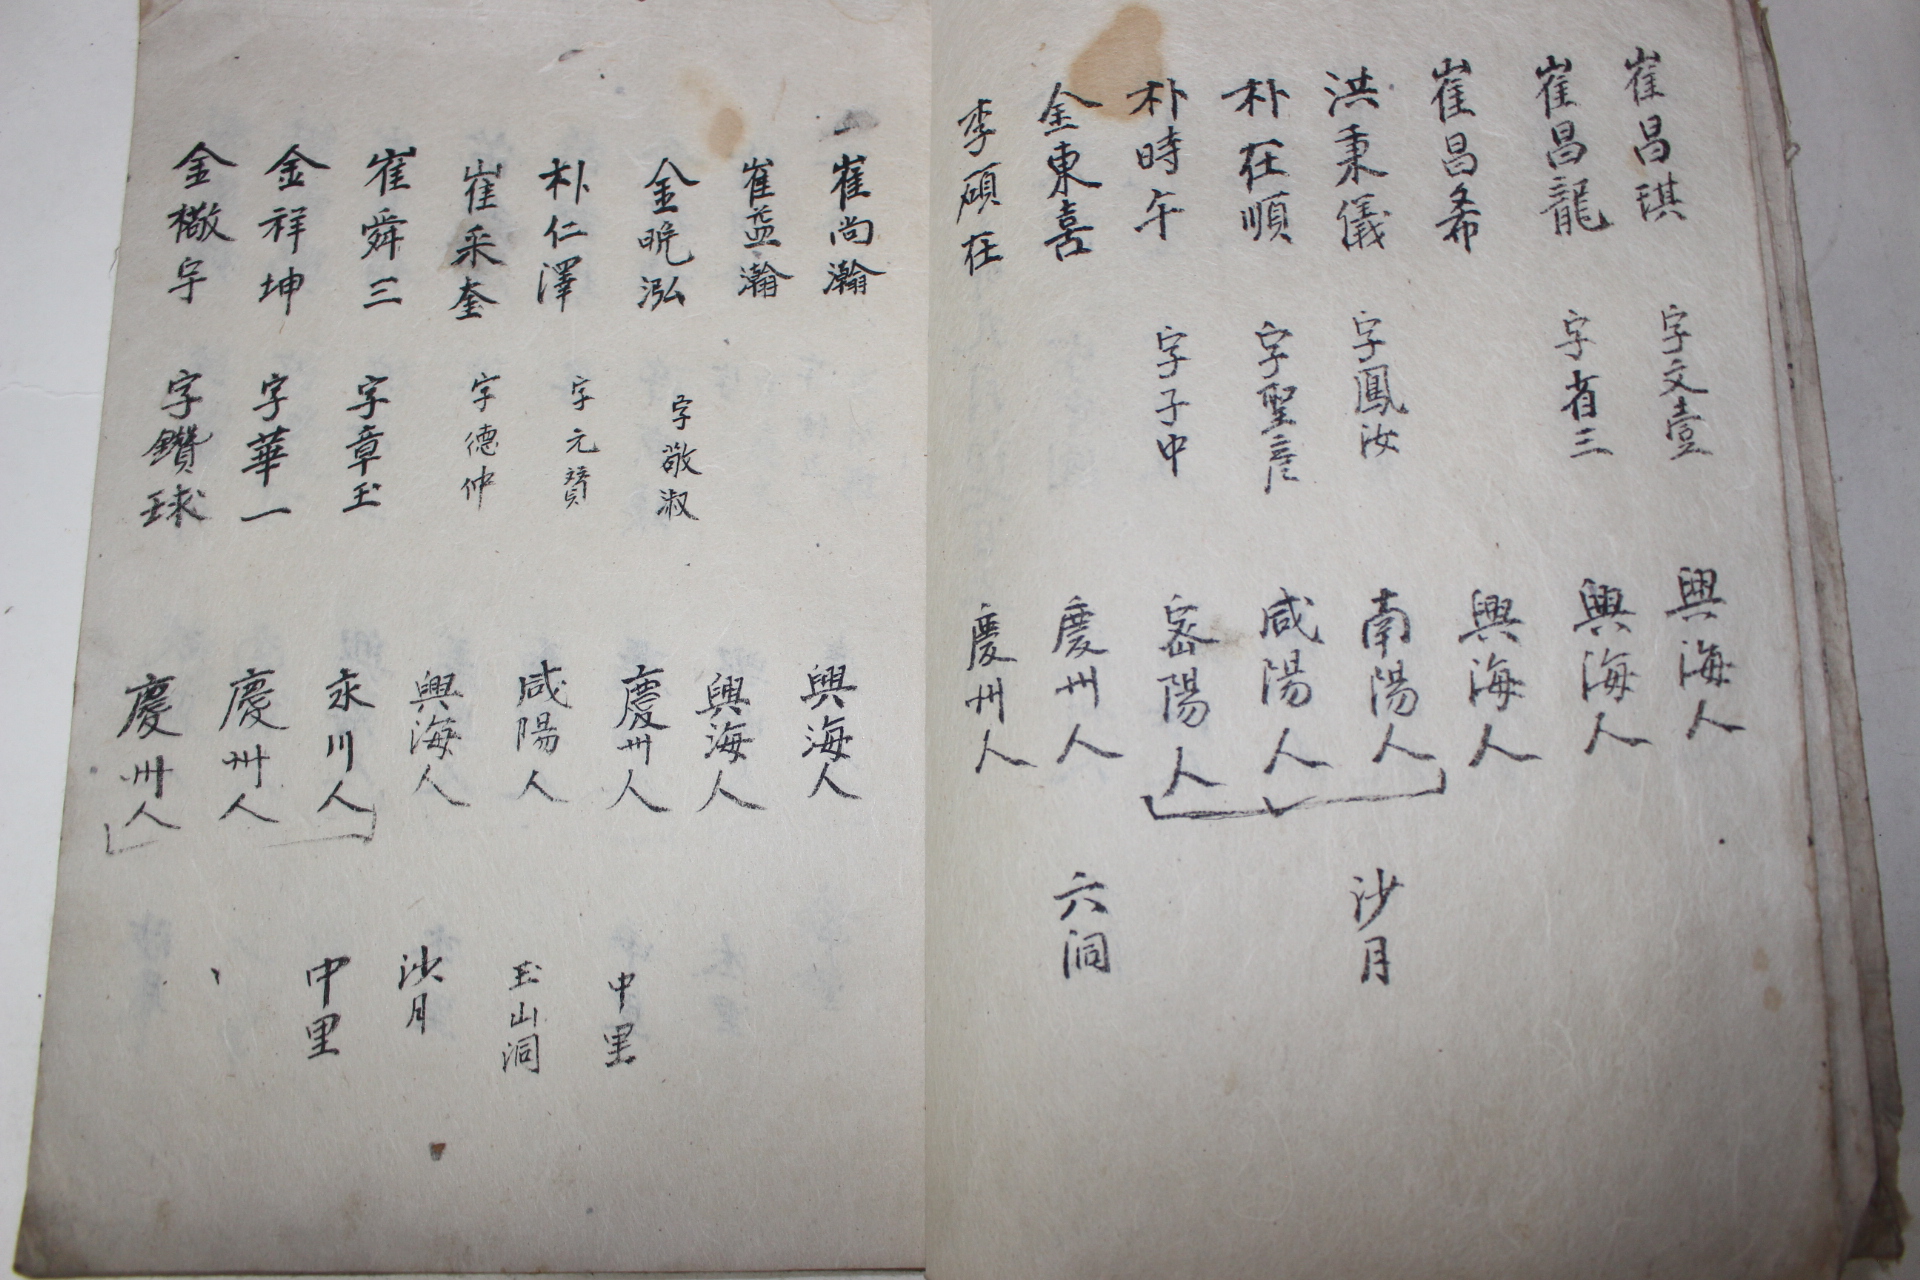 崔昌琪 字文壹 興海人
崔昌龍 字省三 興海人
崔昌希 興海人
洪秉儀 字鳳汝 南陽人 沙月
朴在順 字聖彦 咸陽人
朴時午 字子中 密陽人
金東喜 慶州人 六洞
李碩在 慶州人
崔尚瀚 興海人
崔益瀚 興海人
金晩泓 字敬淑 慶州人 中里
朴仁澤 字元贊 咸陽人 玉山洞
崔采奎 字德仲 興海人 沙月
崔舜三 字章玉 永川人 中里
金祥坤 字華一 慶州人
金宇 字鑽球 慶州人